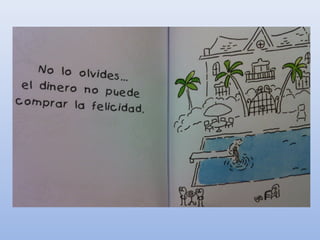 No lo olvides...
el dinero no puede
comprar la felicidad.